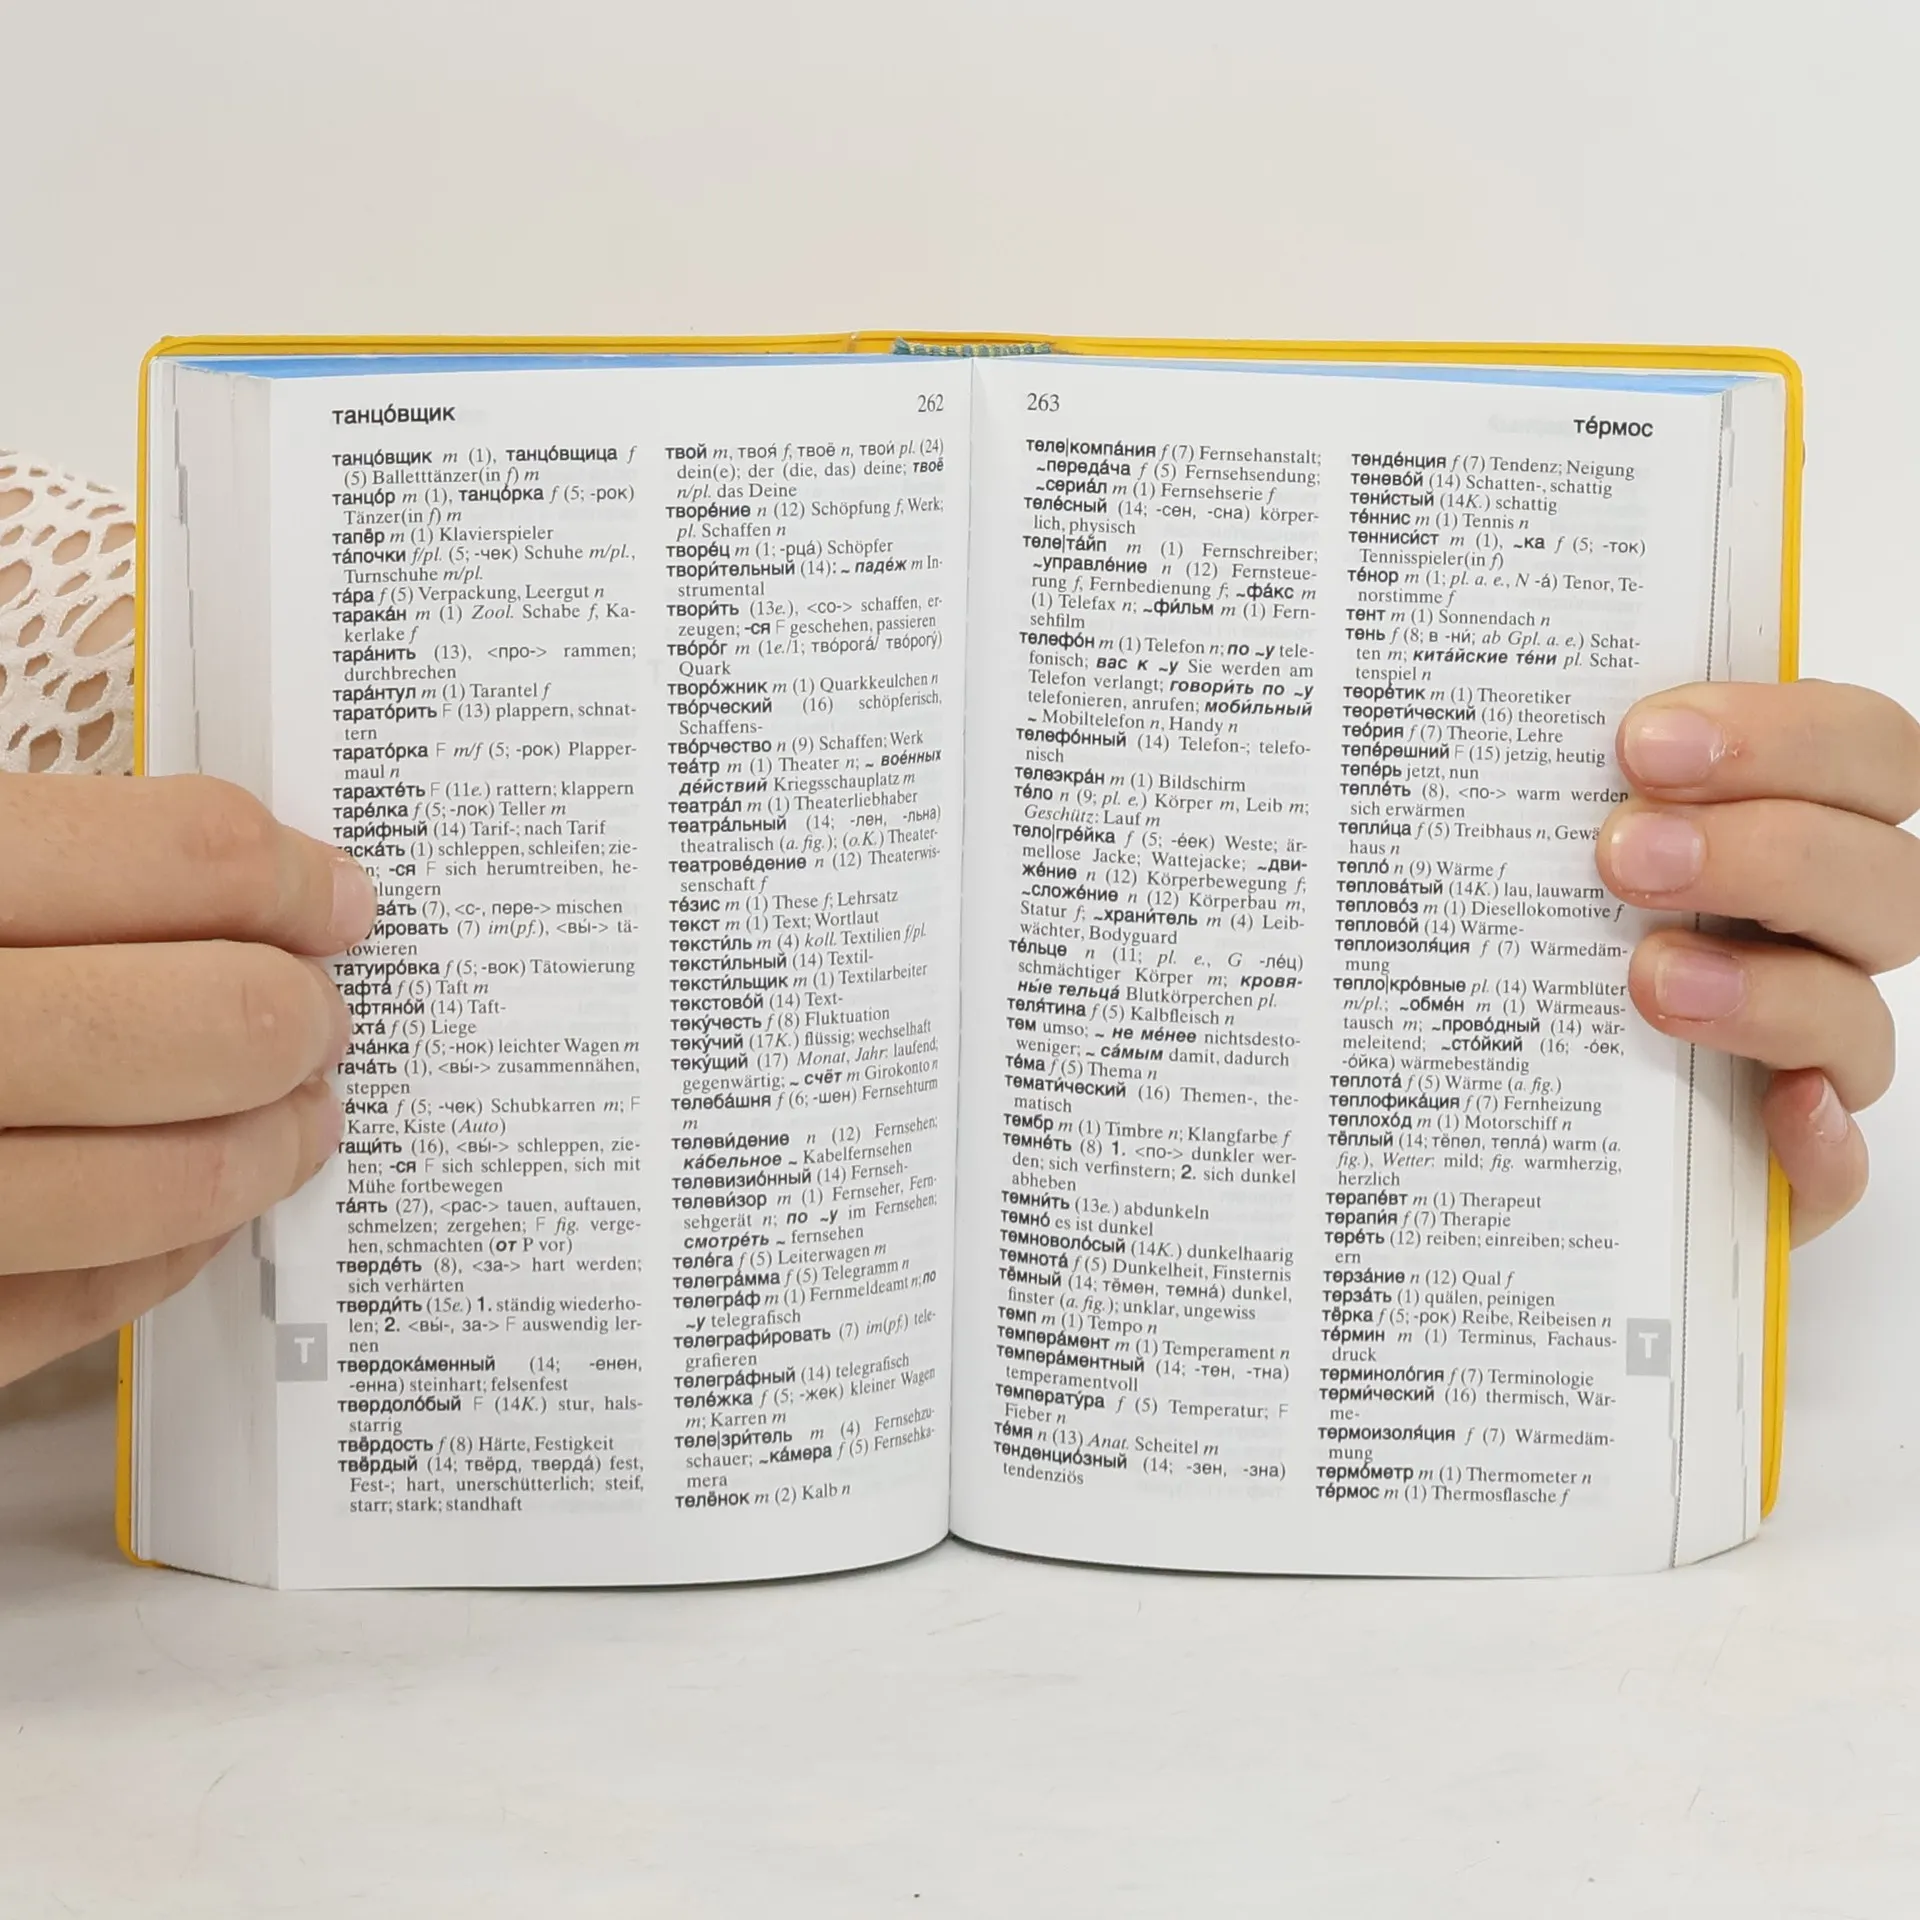 танцо́вщик
262
танцо́вщик m (1), танцо́вщица f
(5) Balletttänzer(in f) m
танцо́р m (1), танцо́рка f (5; -рок)
Tänzer(in f) m
тапёр m (1) Klavierspieler
та́почки f/pl. (5; -чек) Schuhe m/pl.,
Turnschuhe m/pl.
та́ра f (5) Verpackung, Leergut n
тарака́н m (1) Zool. Schabe f, Ka-
kerlake f
тара́нить (13), <про-> rammen;
durchbrechen
тара́нтул m (1) Tarantel f
тарато́рить F (13) plappern, schnat-
tern
тарато́рка F m/f (5; -рок) Plapper-
maul n
тарахте́ть F (11e.) rattern; klappern
таре́лка f (5; -лок) Teller m
тари́фный (14) Tarif-; nach Tarif
таска́ть (1) schleppen, schleifen; zie-
-ся F sich herumtreiben, he-
(7), <с-, пере-> mischen
(7) im(pf.), <вы́-> tä-
towieren
татуиро́вка f (5; -вок) Tätowierung
тафта́ f (5) Taft m
(14) Taft-
f (5) Liege
f (5; -нок) leichter Wagen m
тача́ть (1), <вы́-> zusammennähen,
steppen
та́чка f (5; -чек) Schubkarren m; F
Karre, Kiste (Auto)
тащи́ть (16), <вы́-> schleppen, zie-
hen; -ся F sich schleppen, sich mit
Mühe fortbewegen
та́ять (27), <рас-> tauen, auftauen,
schmelzen; zergehen; F fig. verge-
hen, schmachten (от P vor)
тверде́ть (8), <за-> hart werden;
sich verhärten
тверди́ть (15e.) 1. ständig wiederho-
len; 2. <вы́-, за-> F auswendig ler-
nen
твердока́менный (14; -енен,
-енна) steinhart; felsenfest
твердоло́бый F (14K.) stur, hals-
starrig
твёрдость f (8) Härte, Festigkeit
твёрдый (14; твёрд, тверда́) fest,
Fest-; hart, unerschütterlich; steif,
starr; stark; standhaft
твой m, твоя́ f, твоё n, твои́ pl. (24)
dein(e); der (die, das) deine; твоё
n/pl. das Deine
творе́ние n (12) Schöpfung f, Werk;
pl. Schaffen n
творе́ц m (1; -рца́) Schöpfer
твори́тельный (14): ~ паде́ж m In-
strumental
твори́ть (13e.), <со-> schaffen, er-
zeugen; -ся F geschehen, passieren
тво́ро́г m (1e./1; тво́рога́/ тво́рогу́)
Quark
творо́жник m (1) Quarkkeulchen n
тво́рческий (16) schöpferisch,
Schaffens-
тво́рчество n (9) Schaffen; Werk
теа́тр m (1) Theater n; ~ вое́нных
де́йствий Kriegsschauplatz m
театра́л m (1) Theaterliebhaber
театра́льный (14; -лен, -льна)
theatralisch (a. fig.); (o.K.) Theater-
театрове́дение n (12) Theaterwis-
senschaft f
те́зис m (1) These f; Lehrsatz
текст m (1) Text; Wortlaut
тексти́ль m (4) koll. Textilien f/pl.
тексти́льный (14) Textil-
тексти́льщик m (1) Textilarbeiter
текстово́й (14) Text-
теку́честь f (8) Fluktuation
теку́чий (17K.) flüssig; wechselhaft
теку́щий (17) Monat, Jahr: laufend;
gegenwärtig; ~ счёт m Girokonto n
телеба́шня f (6; -шен) Fernsehturm
m
телеви́дение n (12) Fernsehen;
ка́бельное ~ Kabelfernsehen
телевизио́нный (14) Fernseh-
телеви́зор m (1) Fernseher, Fern-
sehgerät n; по ~у im Fernsehen;
смотре́ть ~ fernsehen
теле́га f (5) Leiterwagen m
телегра́мма f (5) Telegramm n
телегра́ф m (1) Fernmeldeamt n; по
~у telegrafisch
телеграфи́ровать (7) im(pf.) tele-
grafieren
телегра́фный (14) telegrafisch
теле́жка f (5; -жек) kleiner Wagen
m; Karren m
теле|зри́тель m (4) Fernsehzu-
schauer; ~ка́мера f (5) Fernsehka-
mera
телёнок m (2) Kalb n
T
263
те́рмос
теле|компа́ния f (7) Fernsehanstalt;
~переда́ча f (5) Fernsehsendung;
~сериа́л m (1) Fernsehserie f
теле́сный (14; -сен, -сна) körper-
lich, physisch
теле|та́йп m (1) Fernschreiber;
~управле́ние n (12) Fernsteue-
rung f, Fernbedienung f; ~фа́кс m
(1) Telefax n; ~фи́льм m (1) Fern-
sehfilm
телефо́н m (1) Telefon n; по ~у tele-
fonisch; вас к ~у Sie werden am
Telefon verlangt; говори́ть по ~у
telefonieren, anrufen; моби́льный
~ Mobiltelefon n, Handy n
телефо́нный (14) Telefon-; telefo-
nisch
телеэкра́н m (1) Bildschirm
те́ло n (9; pl. e.) Körper m, Leib m;
Geschütz: Lauf m
тело|гре́йка f (5; -е́ек) Weste; är-
mellose Jacke; Wattejacke; ~дви-
же́ние n (12) Körperbewegung f;
~сложе́ние n (12) Körperbau m,
Statur f; ~храни́тель m (4) Leib-
wächter, Bodyguard
те́льце n (11; pl. e., G -ле́ц)
schmächtiger Körper m; кровя-
ны́е тельца́ Blutkörperchen pl.
теля́тина f (5) Kalbfleisch n
тем umso; ~ не ме́нее nichtsdesto-
weniger; ~ са́мым damit, dadurch
те́ма f (5) Thema n
темати́ческий (16) Themen-, the-
matisch
тембр m (1) Timbre n; Klangfarbe f
темне́ть (8) 1. <по-> dunkler wer-
den; sich verfinstern; 2. sich dunkel
abheben
темни́ть (13e.) abdunkeln
темно́ es ist dunkel
темноволо́сый (14K.) dunkelhaarig
темнота́ f (5) Dunkelheit, Finsternis
тёмный (14; тёмен, темна́) dunkel,
finster (a. fig.); unklar, ungewiss
темп m (1) Tempo n
темпера́мент m (1) Temperament n
темпера́ментный (14; -тен, -тна)
temperamentvoll
температу́ра f (5) Temperatur; F
Fieber n
те́мя n (13) Anat. Scheitel m
тенденцио́зный (14; -зен, -зна)
tendenziös
тенде́нция f (7) Tendenz; Neigung
тенево́й (14) Schatten-, schattig
тени́стый (14K.) schattig
те́ннис m (1) Tennis n
тенниси́ст m (1), ~ка f (5; -ток)
Tennisspieler(in f)
те́нор m (1; pl. a. e., N -а́) Tenor, Te-
norstimme f
тент m (1) Sonnendach n
тень f (8; в -ни́; ab Gpl. a. e.) Schat-
ten m; кита́йские те́ни pl. Schat-
tenspiel n
теоре́тик m (1) Theoretiker
теорети́ческий (16) theoretisch
тео́рия f (7) Theorie, Lehre
тепе́решний F (15) jetzig, heutig
тепе́рь jetzt, nun
тепле́ть (8), <по-> warm werden
sich erwärmen
тепли́ца f (5) Treibhaus n,
haus n
тепло́ n (9) Wärme f
теплова́тый (14K.) lau, lauwarm
теплово́з m (1) Diesellokomotive f
теплово́й (14) Wärme-
теплоизоля́ция f (7) Wärmedäm-
mung
тепло|кро́вные pl. (14) Warmblüter
m/pl.; ~обме́н m (1) Wärmeaus-
tausch m; ~прово́дный (14) wär-
meleitend; ~сто́йкий (16; -о́ек,
-о́йка) wärmebeständig
теплота́ f (5) Wärme (a. fig.)
теплофика́ция f (7) Fernheizung
теплохо́д m (1) Motorschiff n
тёплый (14; тёпел, тепла́) warm (a.
fig.), Wetter: mild; fig. warmherzig,
herzlich
терапе́вт m (1) Therapeut
терапи́я f (7) Therapie
тере́ть (12) reiben; einreiben; scheu-
ern
терза́ние n (12) Qual f
терза́ть (1) quälen, peinigen
тёрка f (5; -рок) Reibe, Reibeisen n
те́рмин m (1) Terminus, Fachaus-
druck
терминоло́гия f (7) Terminologie
терми́ческий (16) thermisch, Wär-
me-
термоизоля́ция f (7) Wärmedäm-
mung
термо́метр m (1) Thermometer n
те́рмос m (1) Thermosflasche f
T